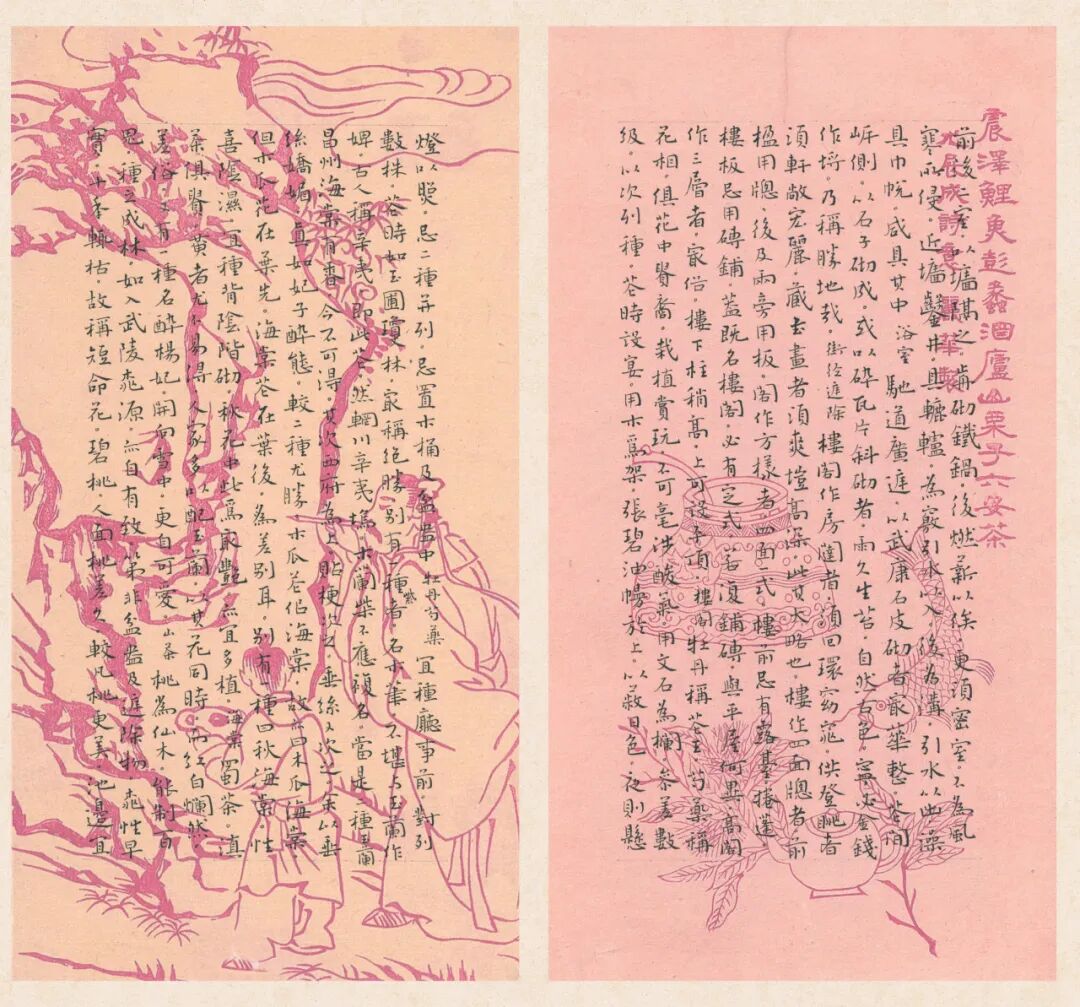 震澤鯉魚彭蠡酒廬山栗子六安茶
前後二室。以墻隔之。前砌鐵鍋。後燃薪以俟。更須密室。不為風
寒所侵。近墻鑿井。具轆轤。為竅引水以入。後為溝。引水以出。澡
具巾帨。咸具其中 浴室 馳道廣庭。以武康石皮砌者最華整。花間
岸側。以石子砌成。或以碎瓦片斜砌者。雨久生苔。自然古色。寧必金錢
作埒。乃稱勝地哉。街徑庭除 樓閣作房闥者。須回環窈窕。供登眺者
須軒敞宏麗。藏書畫者須爽塏高深。此其大略也。樓作四面牕者。前
楹用牕。後及兩旁用板。閣作方樣者。四面一式。樓前忌有露臺捲蓬。
樓板忌用磚鋪。蓋既名樓閣。必有定式。若復鋪磚。與平屋何異。高閣
作三層者。最俗。樓下柱稍高。上可設平頂。樓閣 牡丹稱花王。芍藥稱
花相。俱花中貴裔。栽植賞玩。不可毫涉酸氣。用文石為欄。參差數
級。以次列種。花時設宴。用木為架。張碧油幔於上。以蔽日色。夜則懸
燈以照。忌二種并列。忌置木桶及盆盎中 牡丹芍藥 宜種廳事前。對列
數株。花時如玉圃瓊林。最稱絕勝。別有一種紫者。名木筆。不堪與玉蘭作
婢。古人稱辛夷。即此花。然輞川辛夷塢。木蘭柴不應複名。當是二種 玉蘭
昌州海棠有香。今不可得。其次西府為上。貼梗次之。垂絲又次之。余以垂
絲嬌媚。真如妃子醉態。較二種尤勝。木瓜花似海棠。故亦曰木瓜海棠。
但木瓜花在葉先。海棠花在葉後。為差別耳。別有一種曰秋海棠。性
喜陰濕。宜種背陰階砌。秋花中此為最艷。亦宜多植。海棠 蜀茶。滇
茶俱貴。黃者尤不易得。人家多以配玉蘭。以其花同時。而紅白爛然。
差俗。又有一種名醉楊妃。開向雪中。更自可愛。山茶 桃為仙木。能制百
鬼。種之成林。如入武陵桃源。亦自有致。第非盆盎及庭除物。桃性早
實。十年輒枯。故稱短命花。碧桃。人面桃差久。較凡桃更美。池邊宜